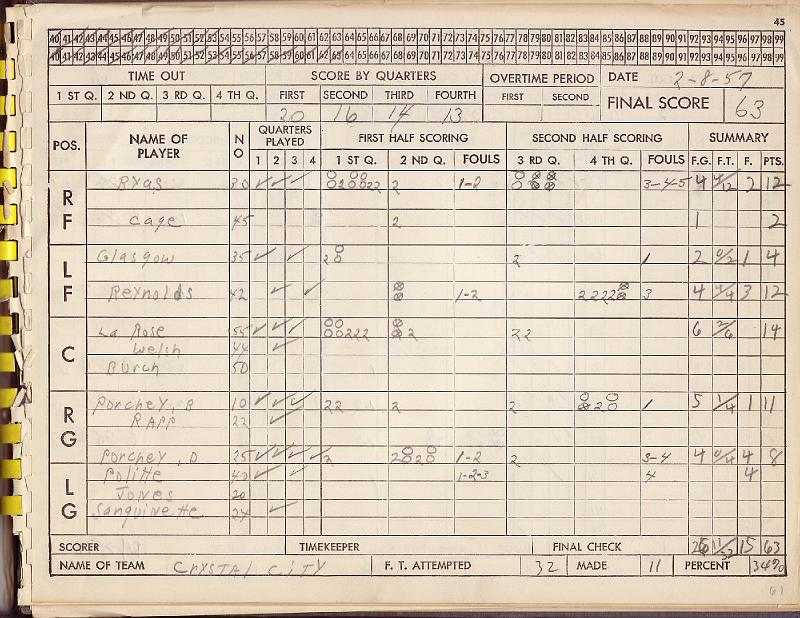 45
40 41 42 43 44 45 46 47 48 49 50 51 52 53 54 55 56 57 58 59 60 61 62 63 64 65 66 67 68 69 70 71 72 73 74 75 76 77 78 79 80 81 82 83 84 85 86 87 88 89 90 91 92 93 94 95 96 97 98 99
40 41 42 43 44 45 46 47 48 49 50 51 52 53 54 55 56 57 58 59 60 61 62 63 64 65 66 67 68 69 70 71 72 73 74 75 76 77 78 79 80 81 82 83 84 85 86 87 88 89 90 91 92 93 94 95 96 97 98 99
TIME OUT SCORE BY QUARTERS OVERTIME PERIOD DATE 2-8-57
1 ST Q. 2 ND Q. 3 RD Q. 4 TH Q. FIRST SECOND THIRD FOURTH FIRST SECOND FINAL SCORE 63
20 16 14 13
POS. NAME OF PLAYER NO QUARTERS PLAYED FIRST HALF SCORING SECOND HALF SCORING SUMMARY
1 2 3 4 1 ST Q. 2 ND Q. FOULS 3 RD Q. 4 TH Q. FOULS F.G. F.T. F. PTS.
RF Byas 30 ✓ ✓ ✓ 2 1-2 3-4-5 4 4/12 2 12
Cage 45 2 1 2
LF Glasgow 35 ✓ ✓ 2 2 1 2 0/2 1 4
Reynolds 42 ✓ ✓ 1-2 2222 3 4 4/4 3 12
C La Rose 55 ✓ ✓ ✓ 222 2 22 6 2/6 14
Welsh 44 ✓
Burch 50
RG Porchey, B 10 ✓ ✓ ✓ 22 2 2 2 1 5 1/4 1 11
Rapp 22 ✓
Porchey, D 25 ✓ ✓ ✓ ✓ 2 2 2 1-2 2 3-4 4 0/4 4 8
LG Politte 40 ✓ ✓ 1-2-3 4 4
Jones 20
Sanquinette 24 ✓
SCORER TIMEKEEPER FINAL CHECK 26 11/32 15 63
NAME OF TEAM Crystal City F. T. ATTEMPTED 32 MADE 11 PERCENT 34%
61